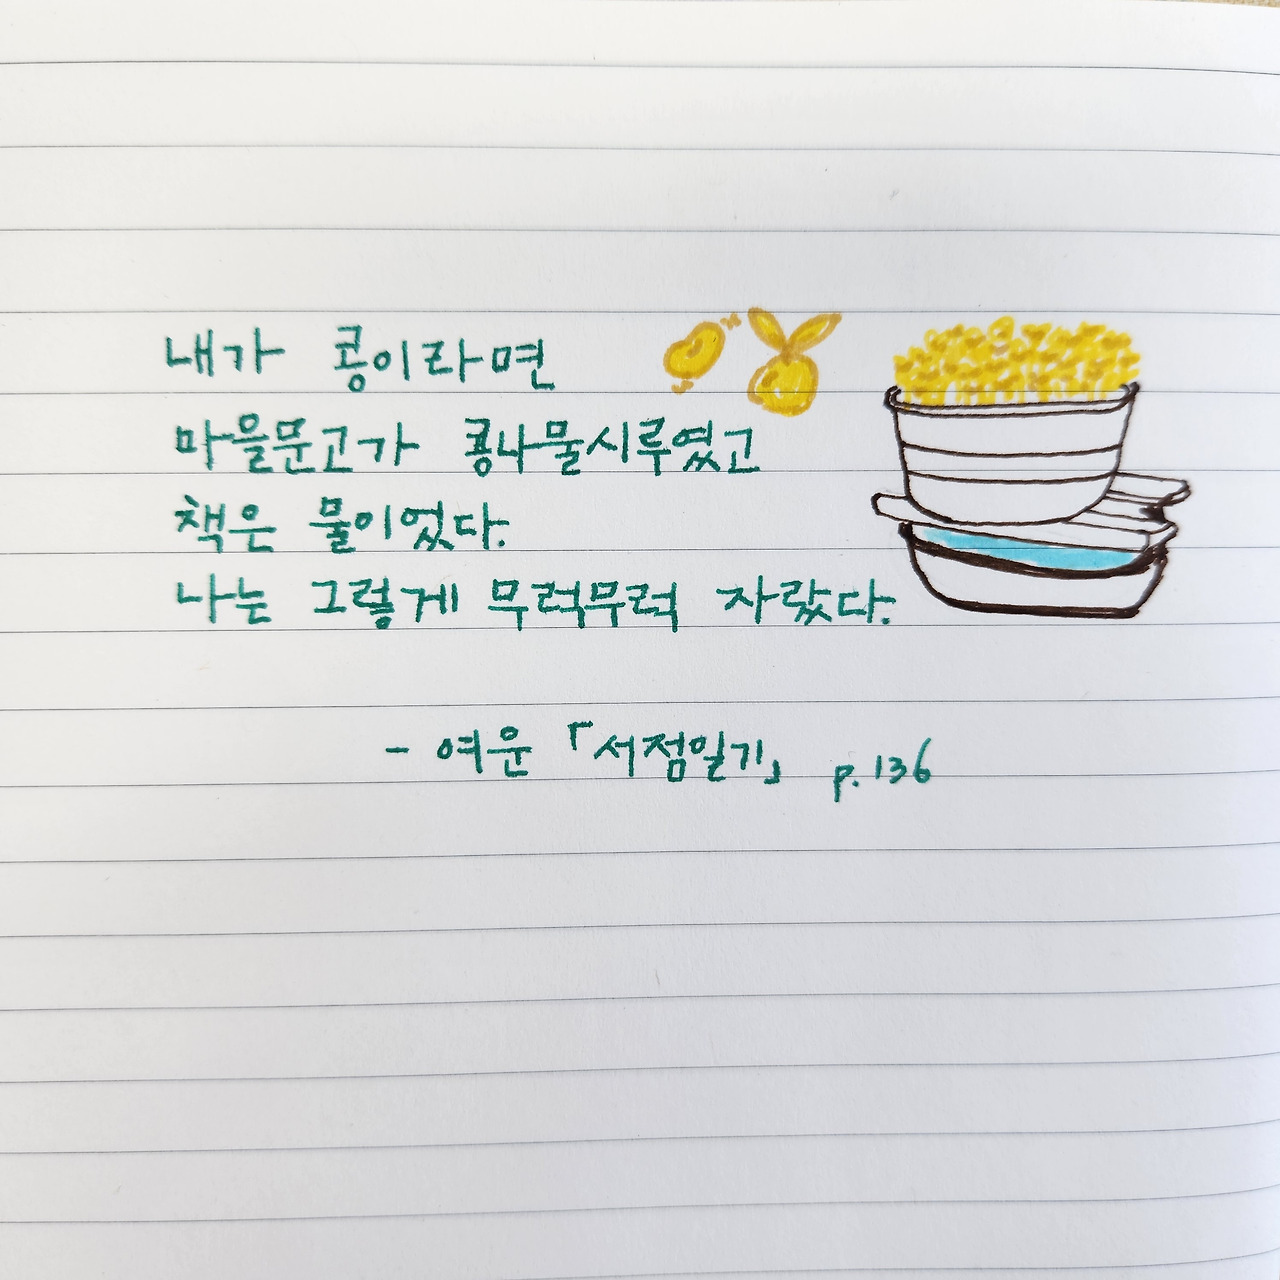 내가 콩이라면
마을문고가 콩나물시루였고
책은 물이었다.
나는 그렇게 무럭무럭 자랐다.
- 여운 「서점일기」 p.136